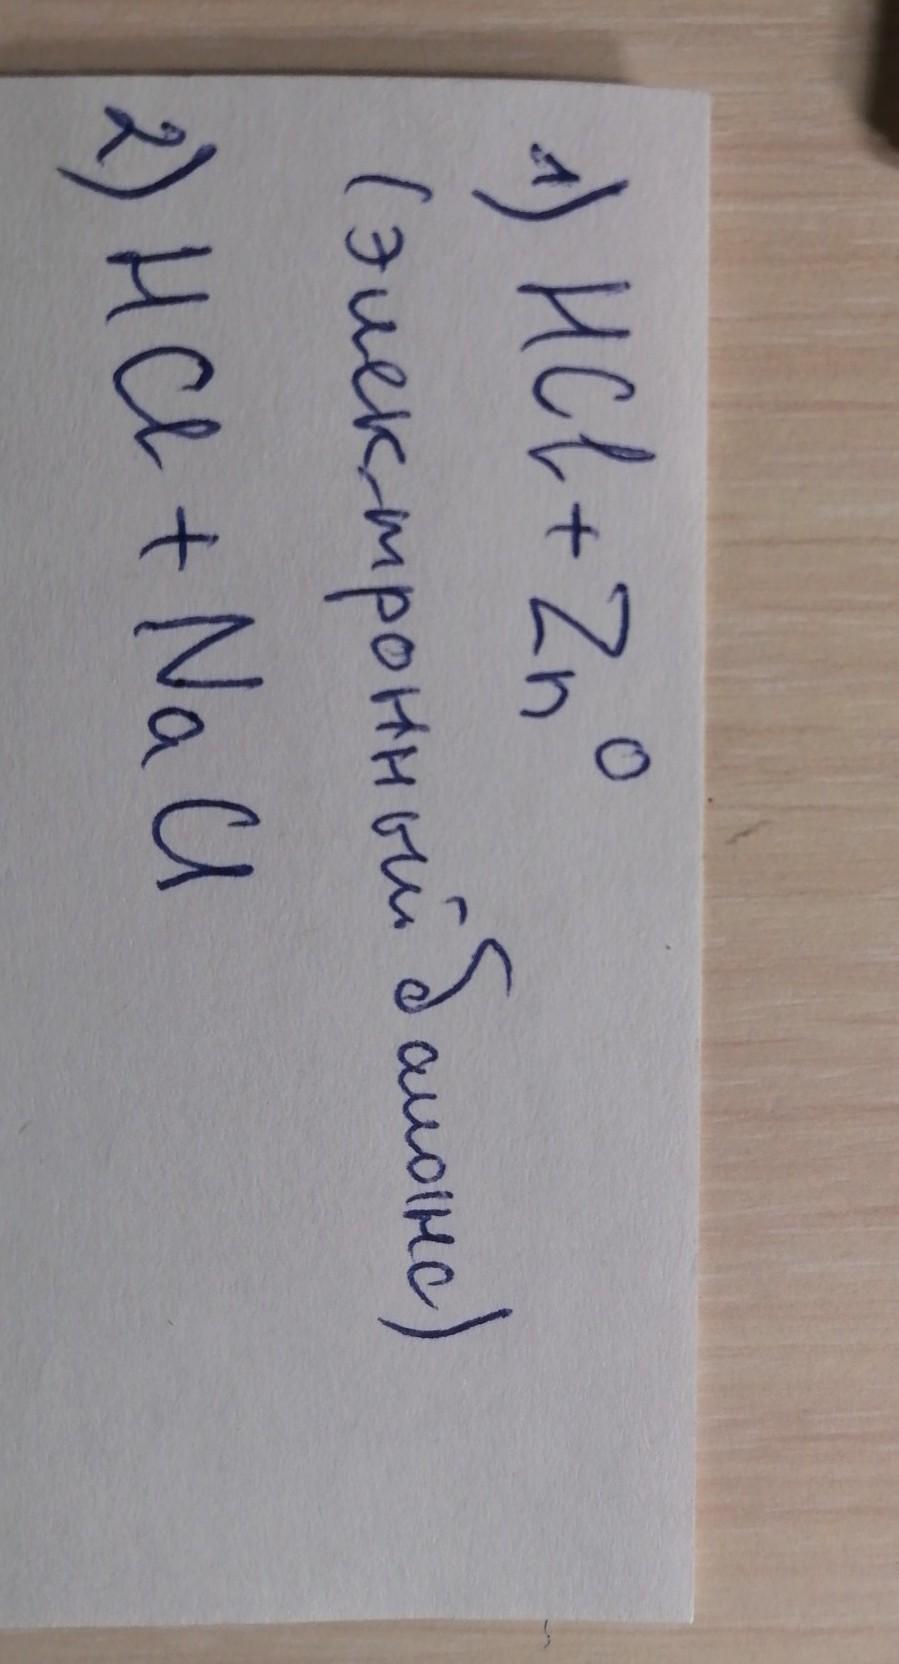 1) HCl + Zn⁰
(электронный баланс)
2) HCl + NaCl